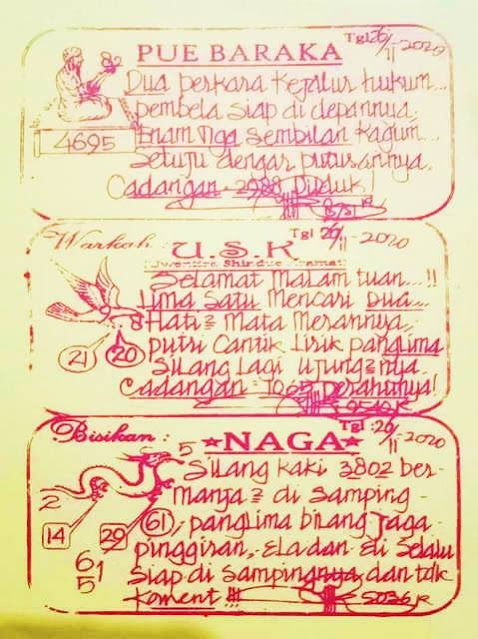 PUE BARAKA
Tgl 26/11-2020
82
4695
Dua perkara kejalur hukum...
pembela siap di depannya.
Enam Tiga Sembilan Kagum...
Setuju dengan putusannya.
Cadangan - 2988 Duduk!
Warkah : U.S.K
Tgl 26/11-2020
Selamat malam tuan...!!
Lima Satu Mencari Dua...
8 Hati2 Mata Merahnya,
21 20
putri Cantik lirik panglima
Silang lagi ujung2nya.
Cadangan : 1065 perahunya!
9540
Bisikan : NAGA
Tgl : 26/11-2020
5
Silang kaki 3802 ber-
manja2 di samping -
2
14 29 61
panglima bilang jaga
pinggiran, Ela dan Eli Selalu
6
1
5
Siap di sampingnya dan tak
Koment !!!
5036